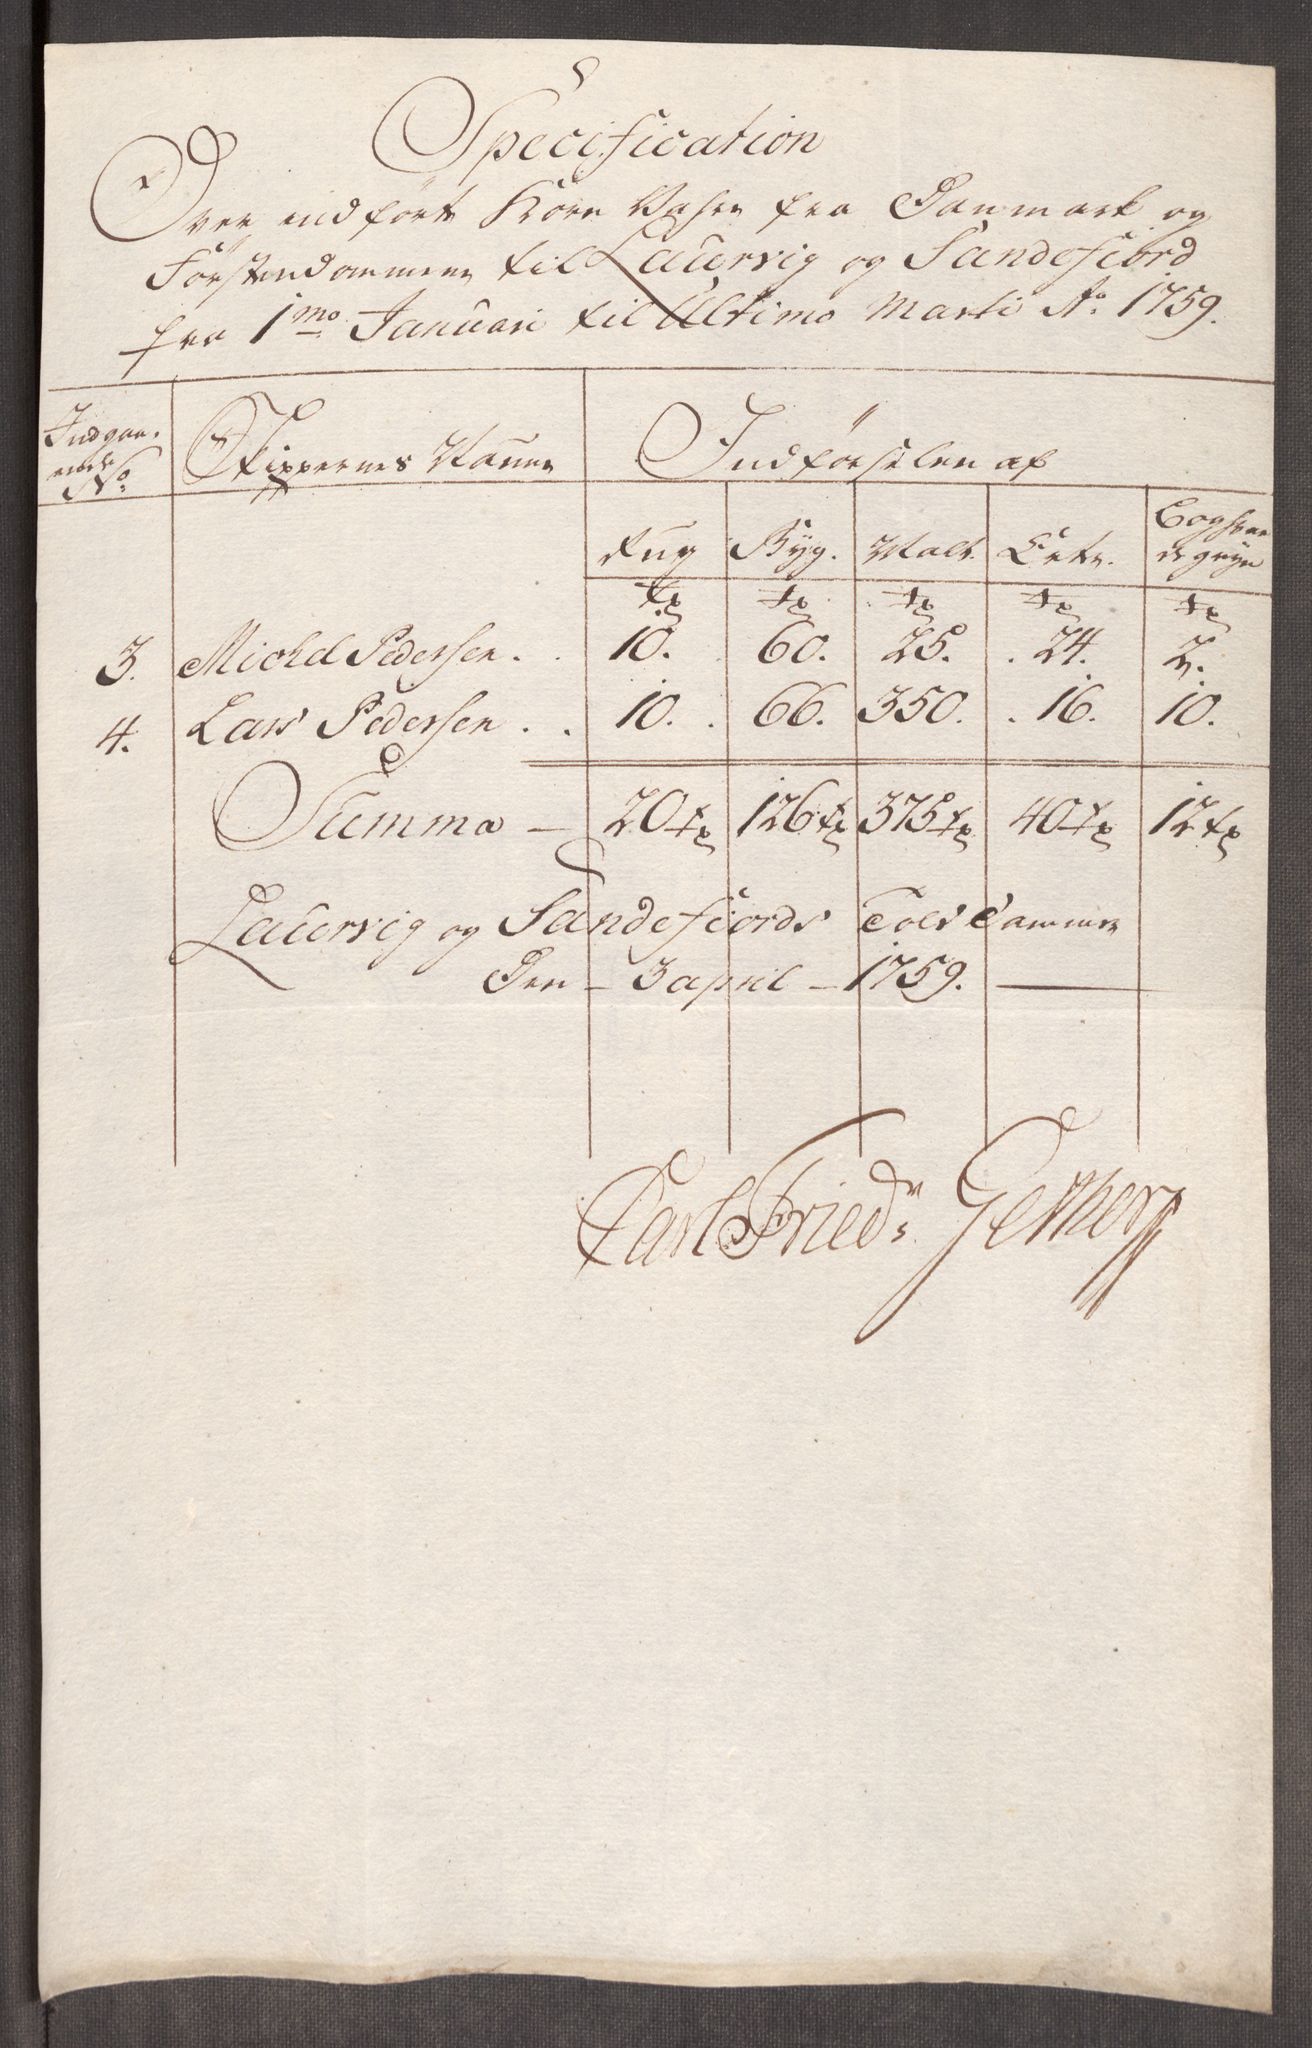 Specification
Over indført Korn Vahre fra Danmark og
Førstendommene til Laurvig og Sandefiord
fra 1mo Januari til Ultimo Marti Ao. 1759.
Indgaa-
ende
No.
Skippernes Nafne
Indførselen af
Rug Byg. Malt. Erter. Boghvee
de gryn
tr tr tr tr tr
3. Michel Pedersen . . 10. 60. 25. . 24. 2.
4. Lars Pedersen . . 10. . 66. 350. . 16. 10.
Summa — 20 tr 126 tr 375 tr 40 tr 12 tr
Laurvig og Sandefiords Told Cammer
Den – 3 april – 1759. —
Carl Friedr. Getherz